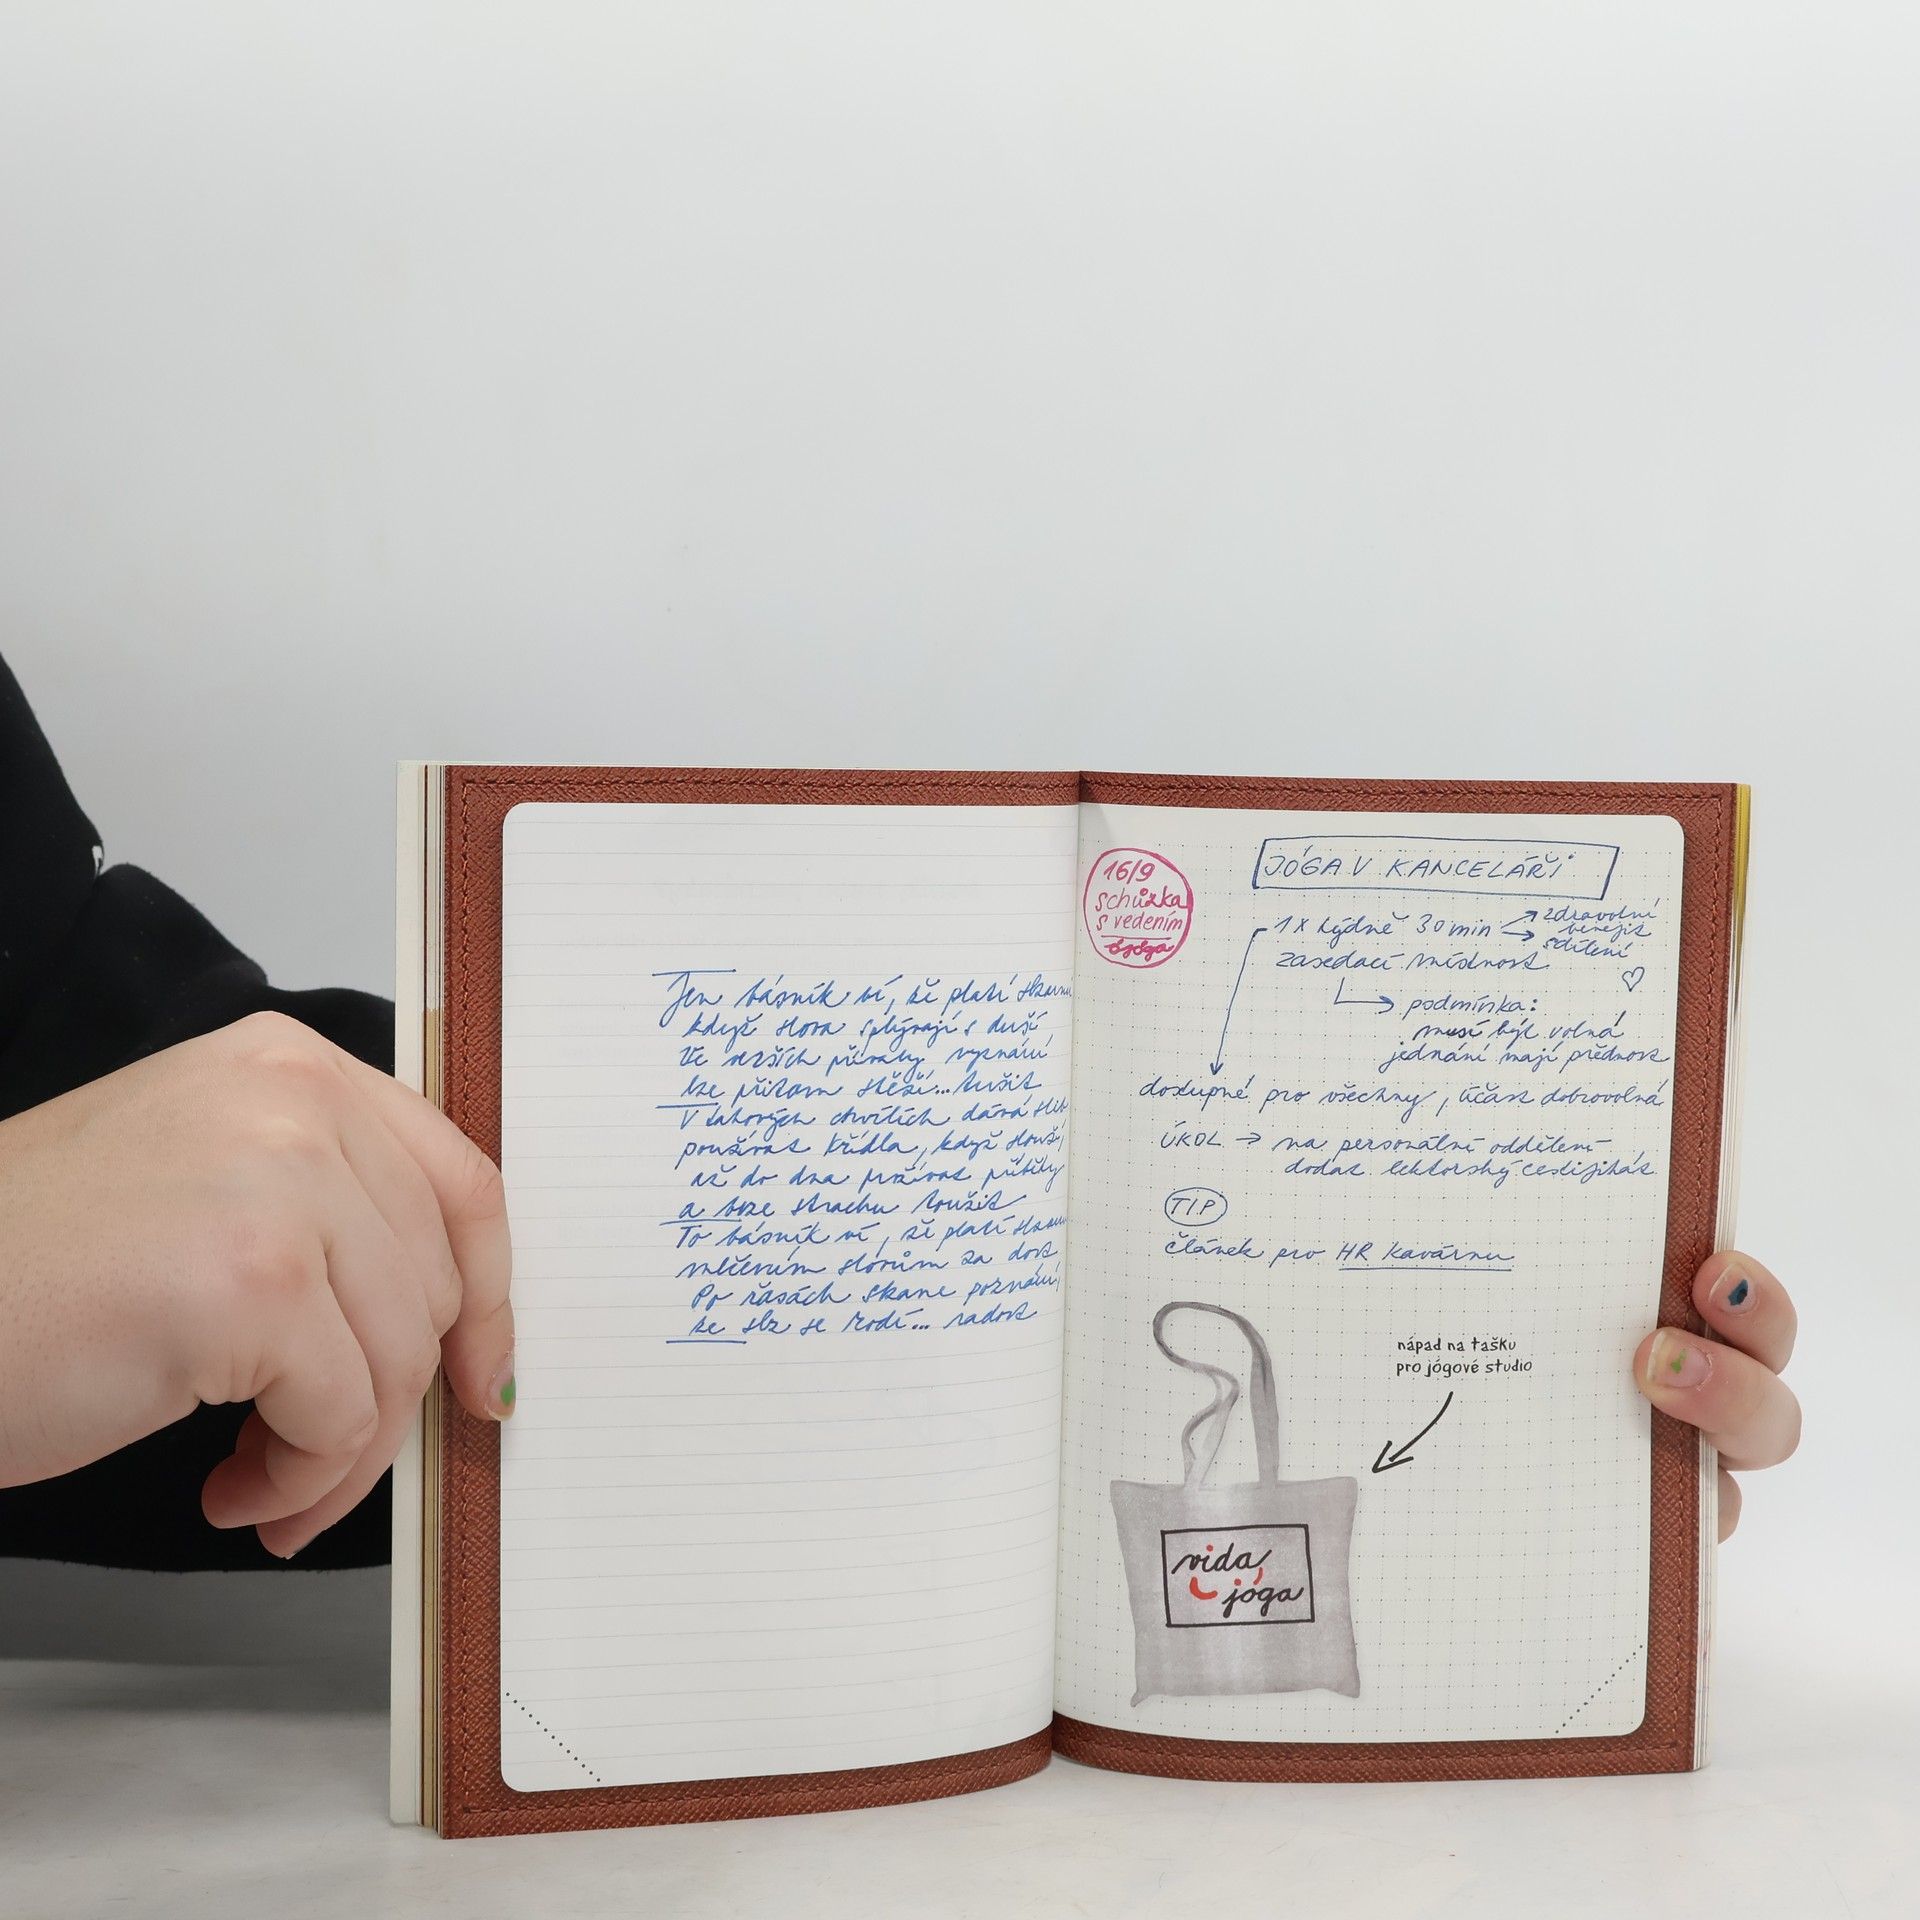 Jen básník ví, že platí
když slova splývají s duší
Ve verších přívaly vyznání
lze přitom stěží... tušit
V takových chvílích dává slib
používat křídla, když slouží,
až do dna prožívat příběhy
a beze strachu toužit
To básník ví, že platí
mlčením slovům za dost
Po řasách skane poznání,
že slz se rodí... radost
16/9
schůzka
s vedením
JÓGA V KANCELÁŘI
1x týdně 30 min
zdravotní
benefit
sdílení
zasedací místnost
podmínka:
musí být volná
jednání mají přednost
dostupné pro všechny, účast dobrovolná
ÚKOL → na personální oddělení
dodat lektorský certifikát
TIP
článek pro HR kavárnu
nápad na tašku
pro jógové studio
vida,
jóga